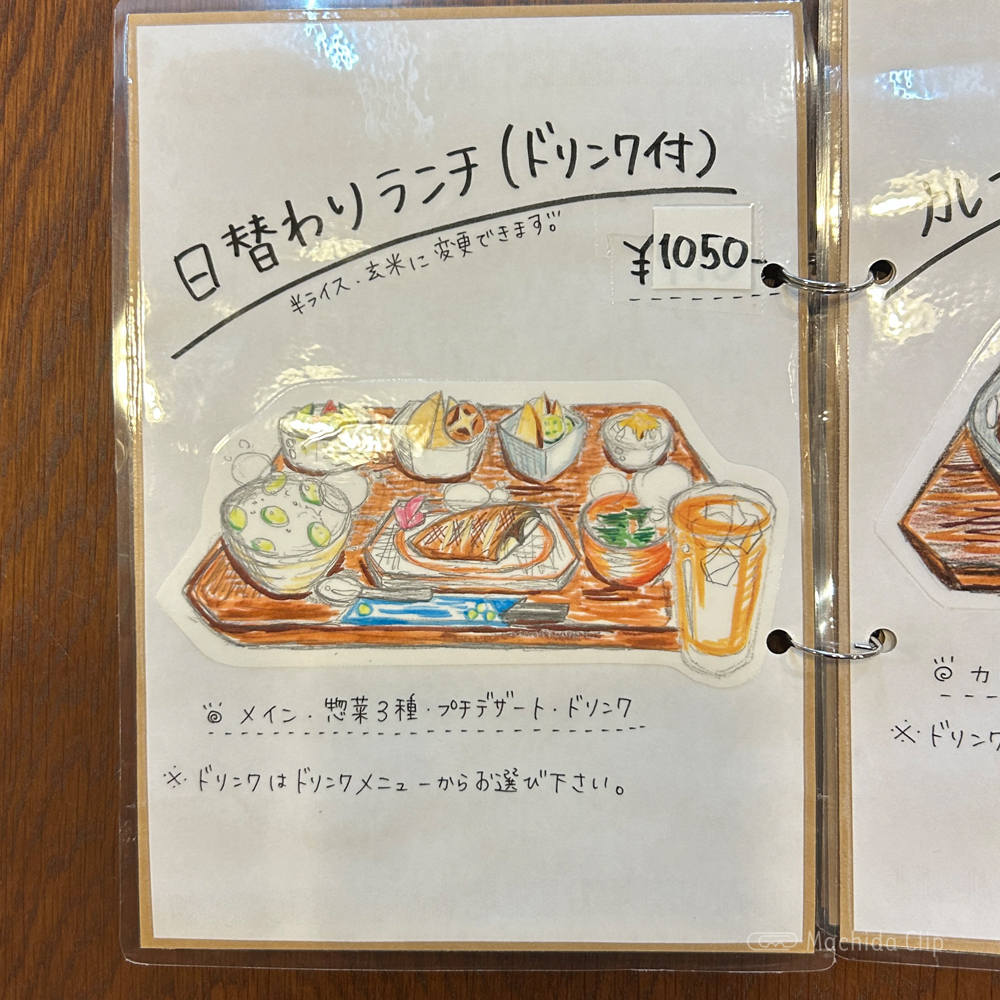 日替わりランチ(ドリンク付)
¥1050-
※ライス・玄米に変更できます。
メイン・惣菜3種・プチデザート・ドリンク
※ドリンクはドリンクメニューからお選び下さい。
カレ
カ
※ドリンク
Machida Clip